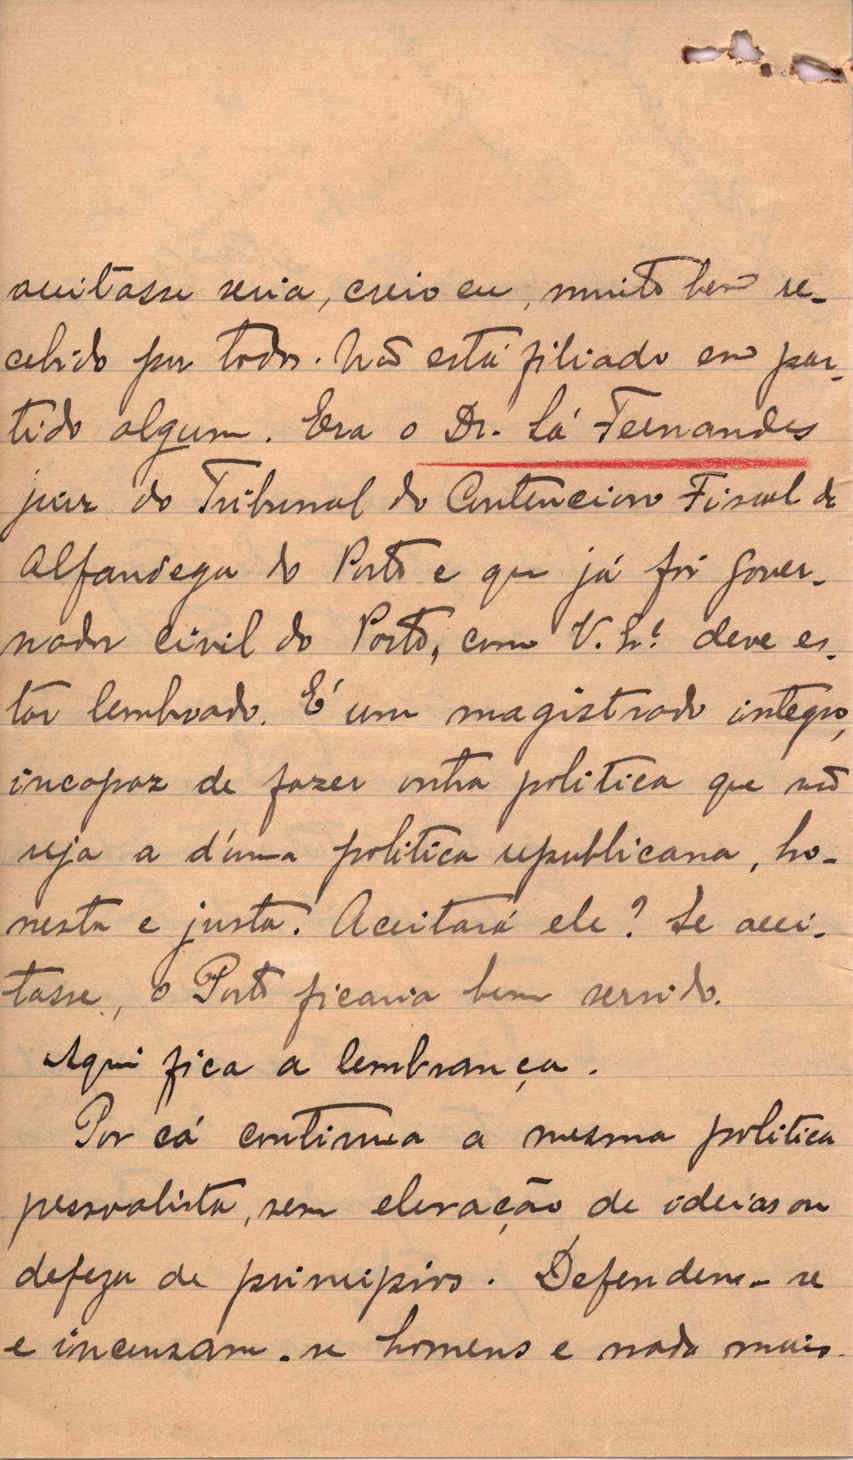 aceitasse seria, creio eu, muito bem re-
cebido por todos. Não está filiado em par-
tido algum. Era o Dr. Sá Fernandes
juiz do Tribunal do Contencioso Fiscal da
Alfandega do Porto e que já foi Gover-
nador civil do Porto, como V. Ex.ª deve es-
tar lembrado. É um magistrado integro,
incapaz de fazer outra politica que não
seja a d'uma politica republicana, ho-
nesta e justa. Aceitará ele? Se acei-
tasse, o Porto ficaria bem servido.
Aqui fica a lembrança.
Por cá continua a mesma politica
pessoalista, sem elevação de ideias ou
defeza de principios. Defendem-se
e incensam-se homens e nada mais.